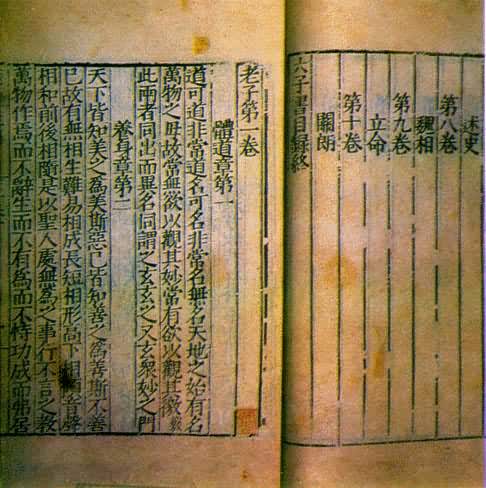 述史
第八卷
魏相
第九卷
立命
第十卷
關朗
六子書目録終
老子第一卷
體道章第一
道可道非常道名可名非常名無名天地之始有名
萬物之母故常無欲以觀其妙常有欲以觀其徼
此兩者同出而異名同謂之玄玄之又玄衆妙之門
養身章第二
天下皆知美之爲美斯惡已皆知善之爲善斯不善
已故有無相生難易相成長短相形高下相傾音聲
相和前後相隨是以聖人處無爲之事行不言之教
萬物作焉而不辭生而不有爲而不恃功成而弗居